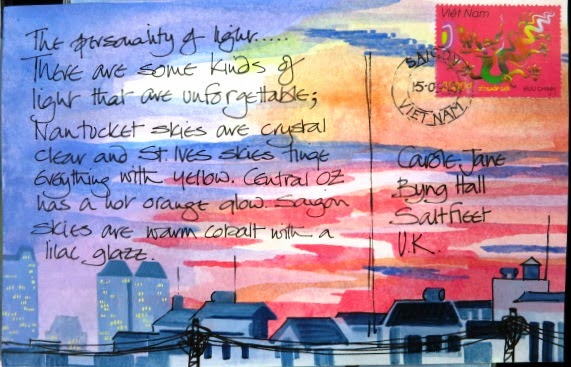 The personality of light.....
There are some kinds of
light that are unforgettable;
Nantucket skies are crystal
clear and St. Ives skies tinge
everything with yellow. Central Oz
has a hot orange glow. Saigon
skies are warm cobalt with a
lilac glaze.
Việt Nam
BƯU CHÍNH
SAIGON
VIETNAM
Carole, Jane
Byng Hall
Saltfleet
U.K.